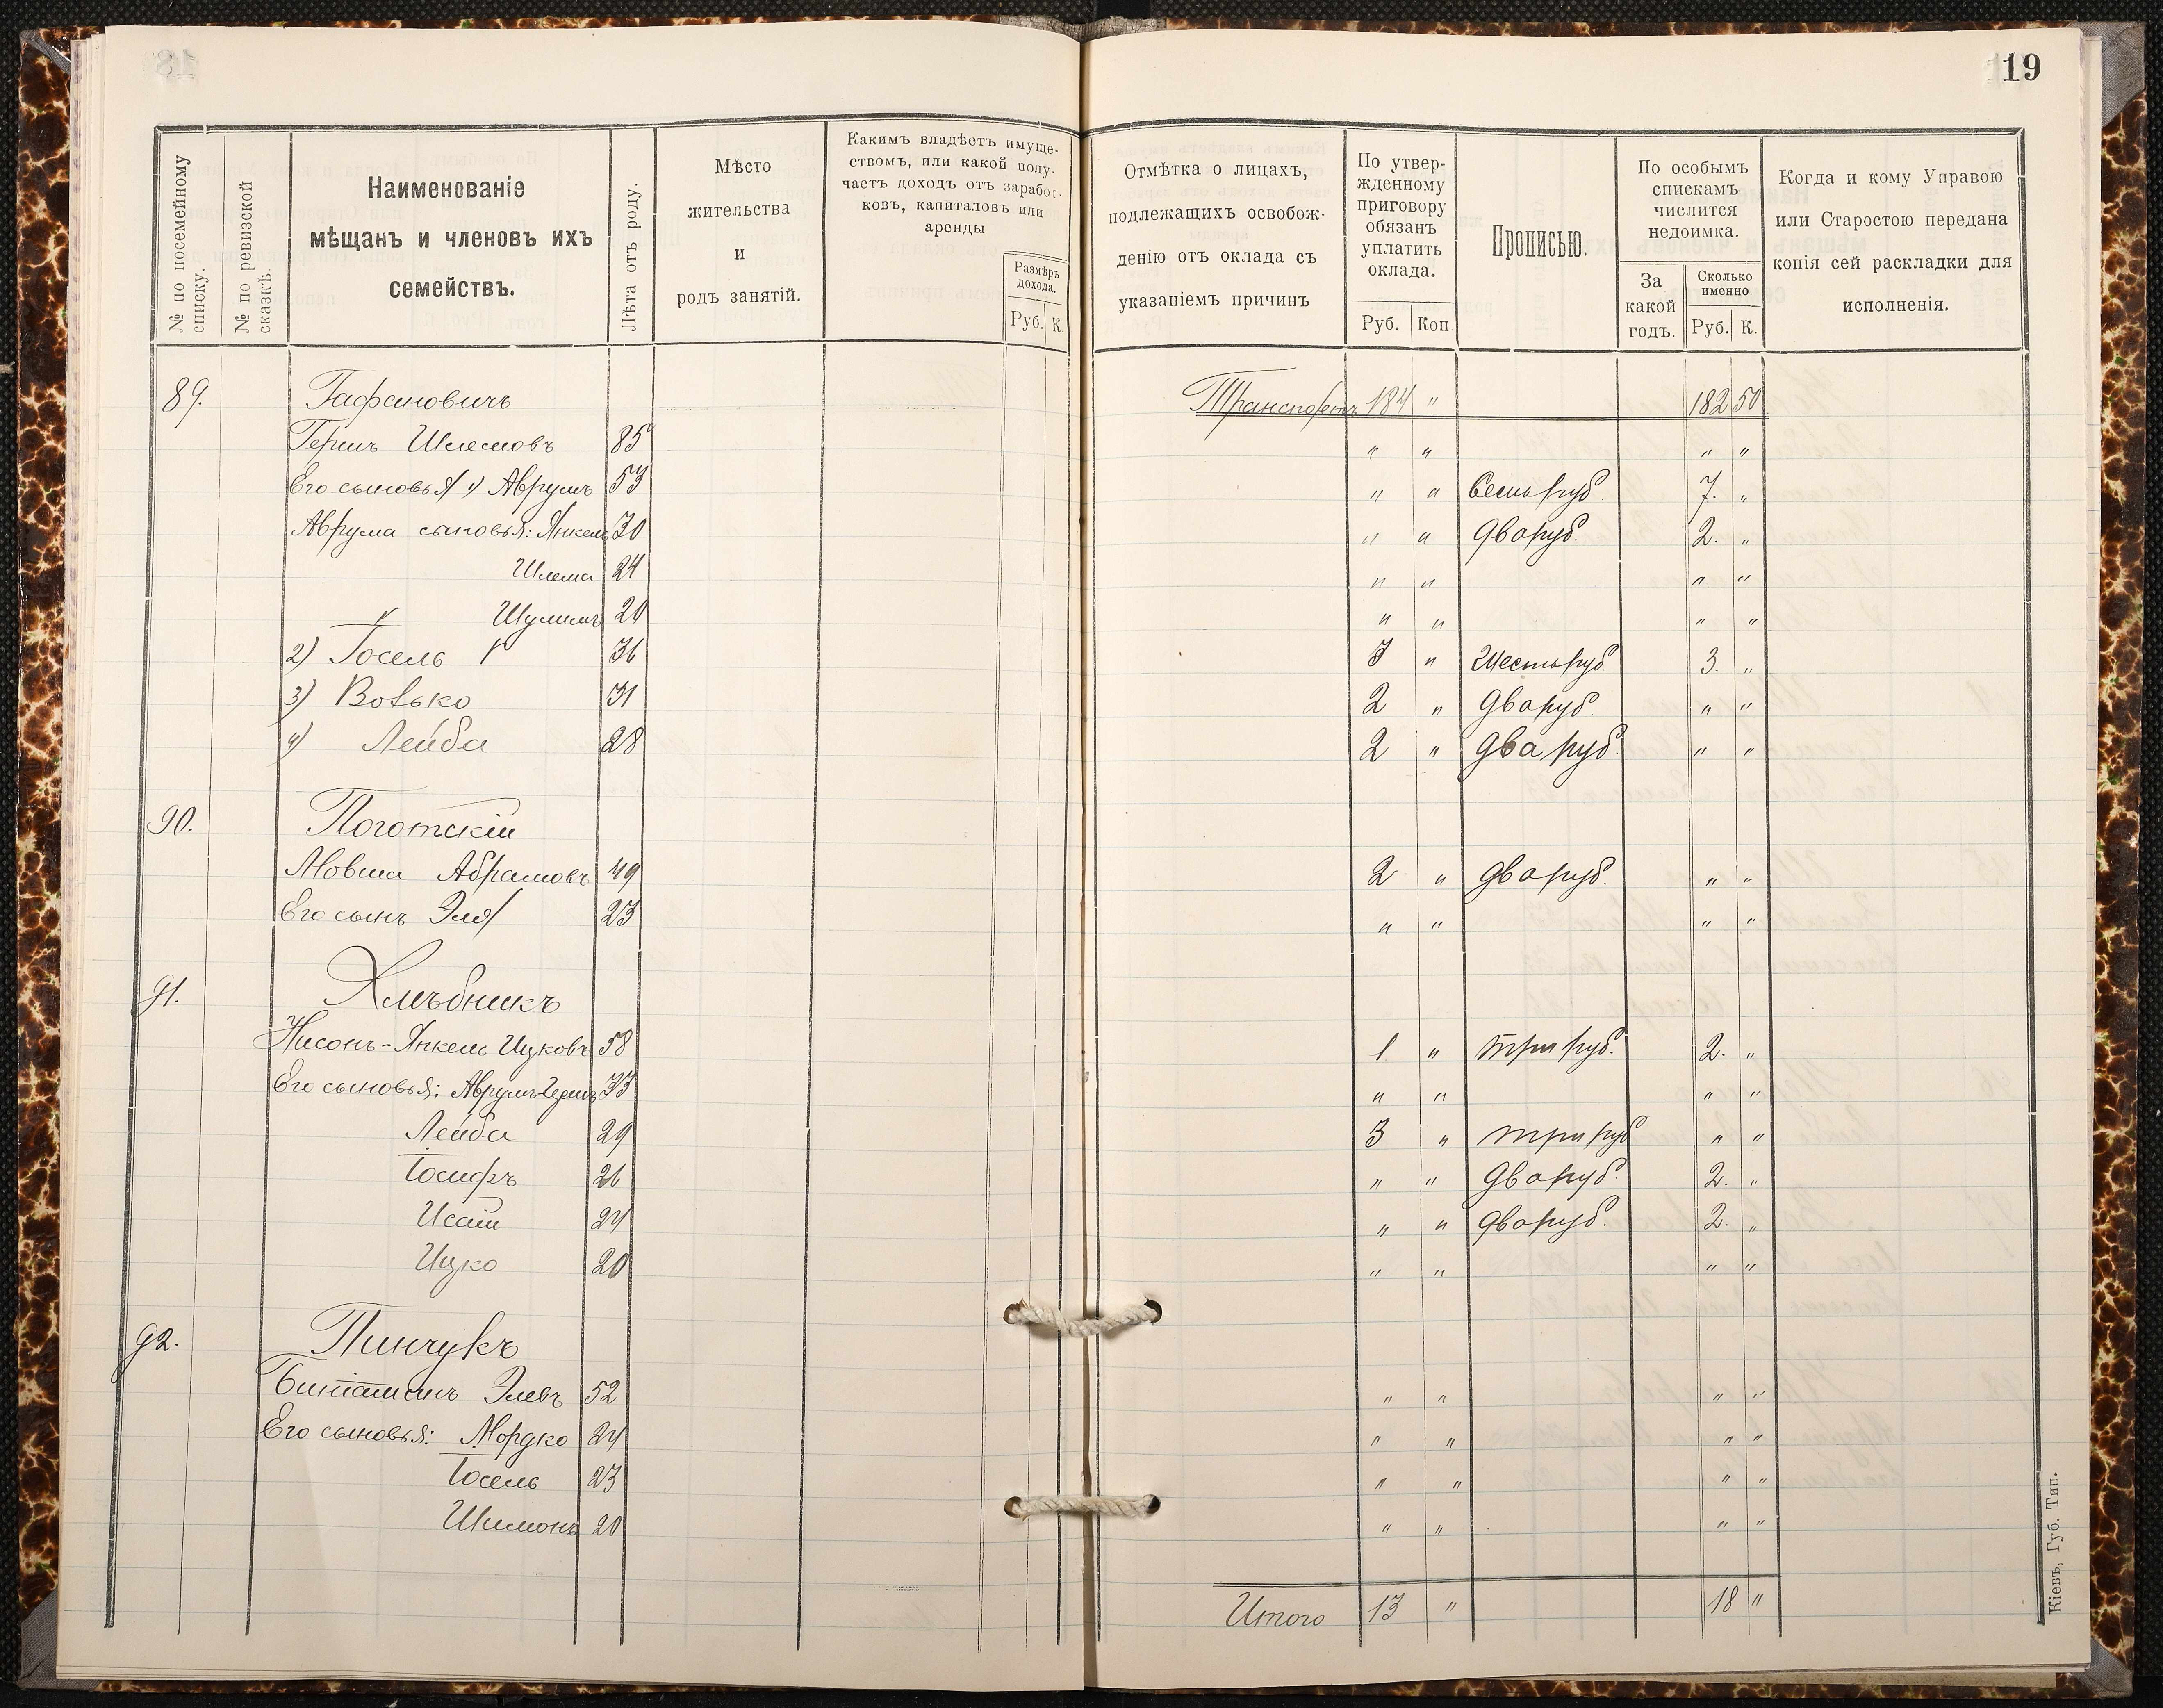 19
№ по посемейному списку.
№ по ревизской сказкѣ.
Наименованіе мѣщанъ и членовъ ихъ семействъ.
Лѣта отъ роду.
Мѣсто жительства и родъ занятій.
Какимъ владѣетъ имуществомъ, или какой получаетъ доходъ отъ заработковъ, капиталовъ или аренды
Размѣръ дохода.
Руб. К.
Отмѣтка о лицахъ, подлежащихъ освобожденію отъ оклада съ указаніемъ причинъ
По утвержденному приговору обязанъ уплатить оклада.
Руб. Коп
Прописью.
По особымъ спискамъ числится недоимка.
За какой годъ.
Сколько именно
Руб. К.
Когда и кому Управою или Старостою передана копія сей раскладки для исполненія.
89. Гафановичъ Транспортъ 184 " 182 50
Гершъ Шлемовъ 85 " " " "
Его сыновья 1) Аврумъ 53 " " Семь руб. 7. "
Аврума сыновья: Янкель 30 " " два руб. 2. "
Шлема 24 " " " "
" Шулимъ 20 " " " "
2) Іосель 36 3 " Шесть руб. 3. "
3) Волько 31 2 " два руб. " "
4) Лейба 28 2 " два руб. " "
90. Поготскій
Мовша Абрамовъ 49 2 " два руб. " "
Его сынъ Эля 23 " " " "
91. Хлѣбникъ
Нисонъ-Янкель Ицковъ 58 1 " три руб. 2. "
Его сыновья: Аврумъ-Гершъ 33 " " " "
Лейба 29 3 " три руб " "
Іосифъ 26 " " два руб. 2. "
Исаій 24 " " два руб. 2. "
Ицко 20 " " " "
92. Пинчукъ
Биніаминъ Элевъ 52 " " " "
Его сыновья: Мордко 24 " " " "
Іосель 23 " " " "
Шимонъ 20 " " " "
Итого 13 " 18 "
Кіевъ, Губ. Тип.